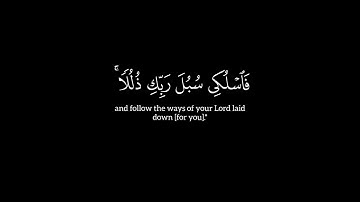 فَٱسۡلُكِي سُبُلَ رَبِّكِ ذُلُلٗاۚ
and follow the ways of your Lord laid
down [for you]."